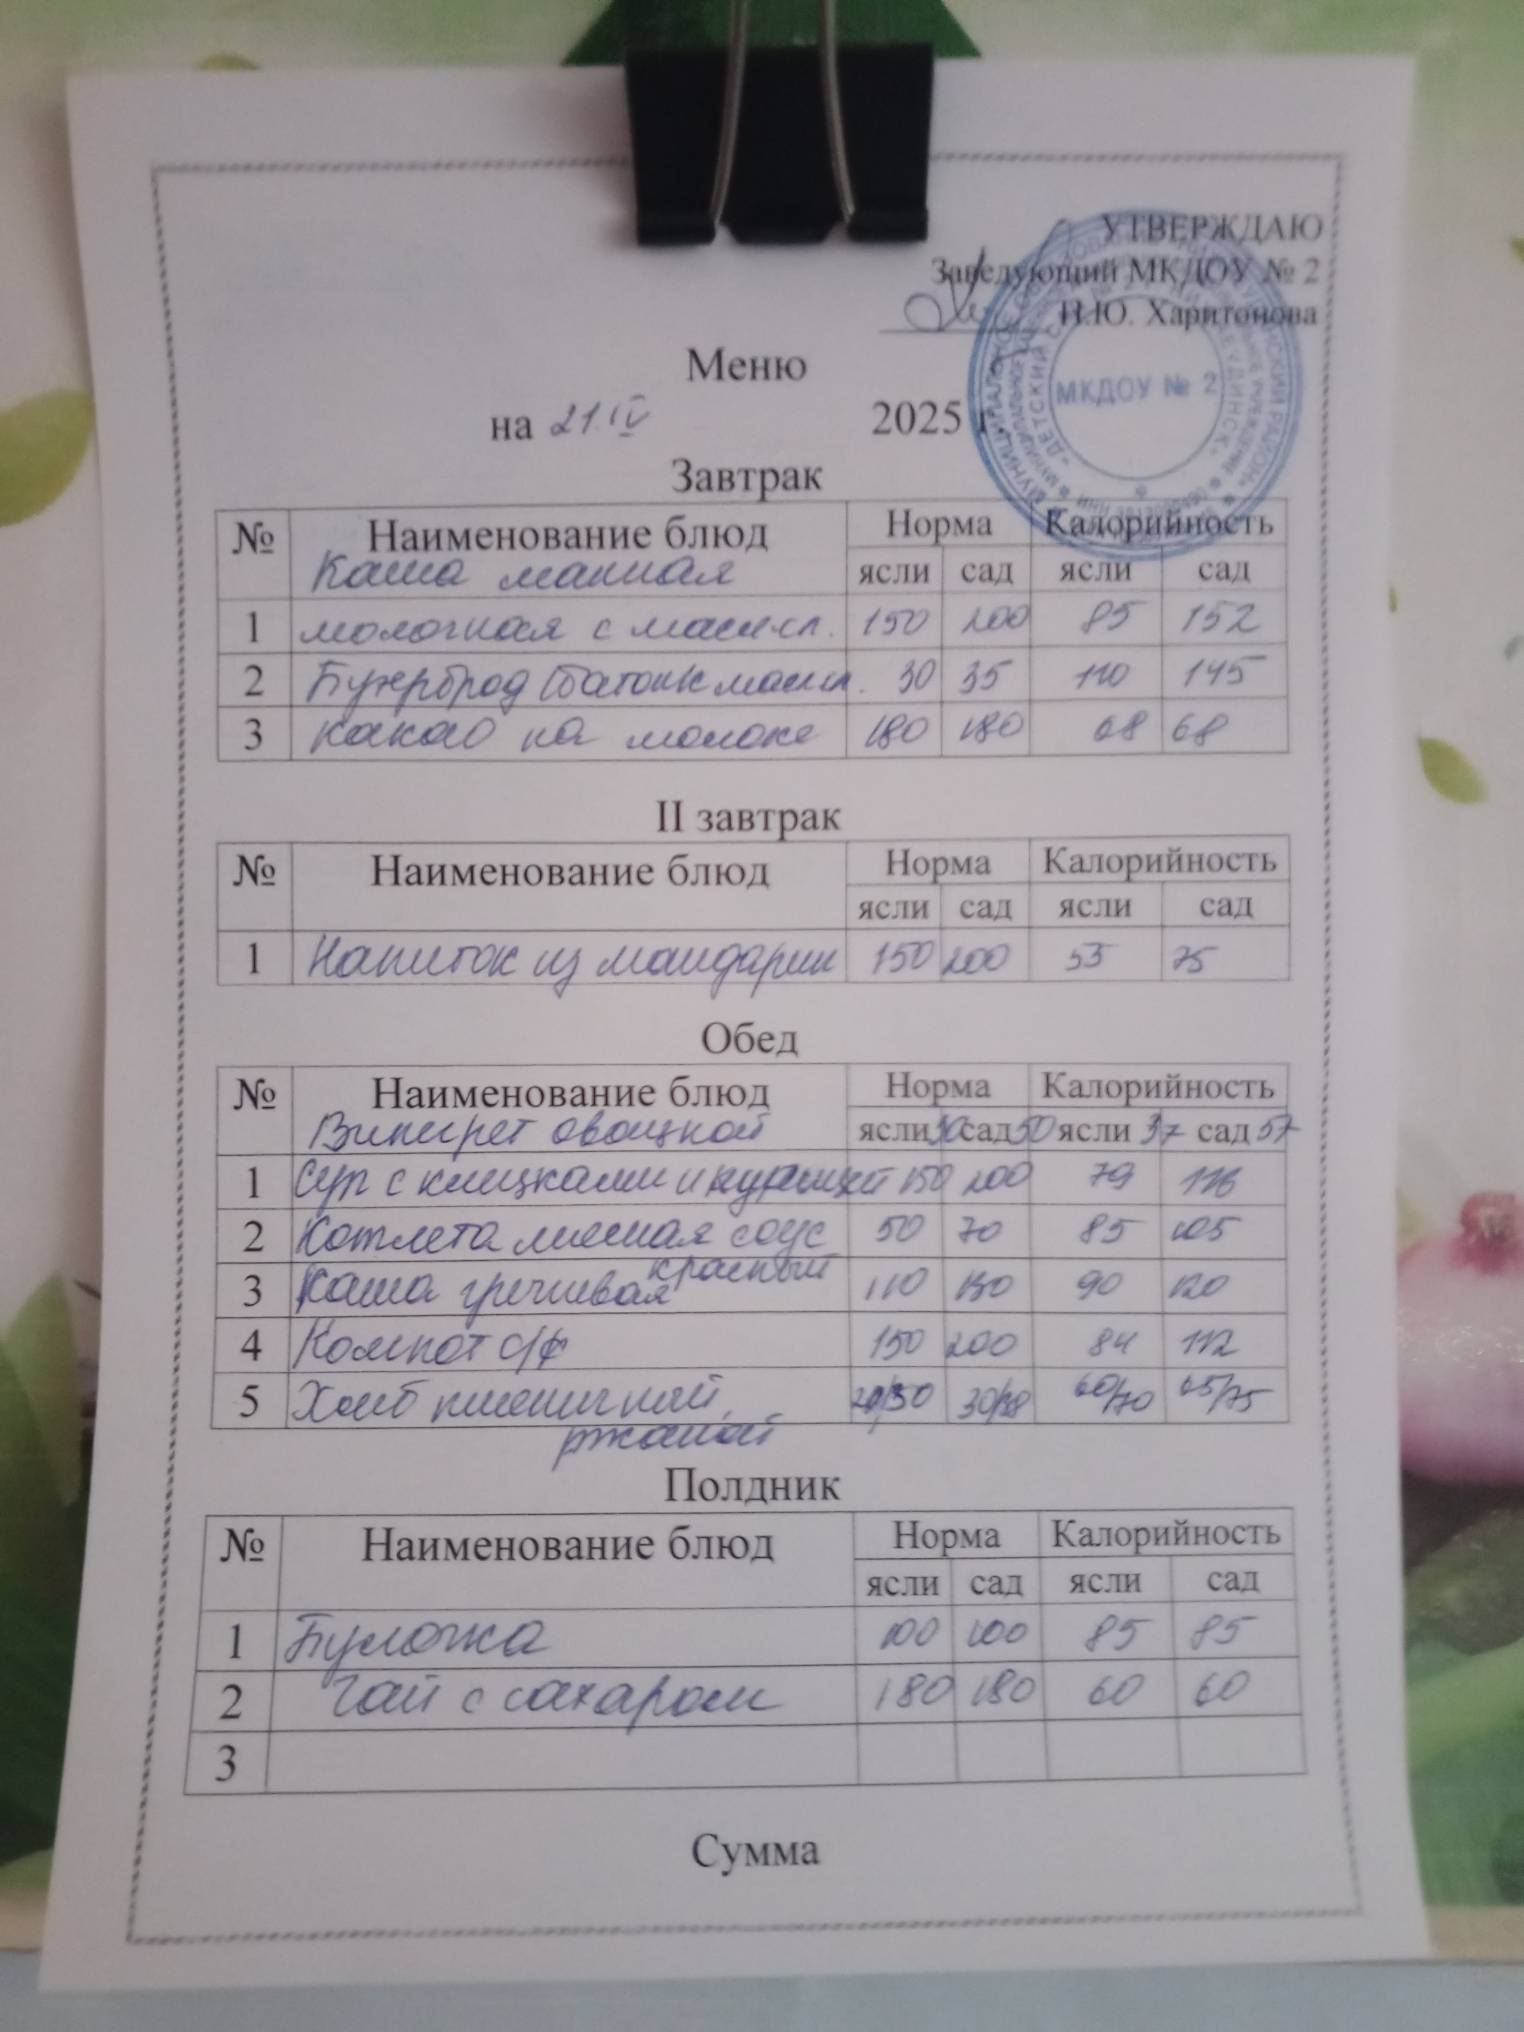 УТВЕРЖДАЮ
Заведующий МКДОУ № 2
Н.Ю. Харитонова
МКДОУ № 2
Меню
на 21.IV 2025 г.
Завтрак
№ Наименование блюд Норма Калорийность
ясли сад ясли сад
Каша манная
1 молочная с масл.сл. 150 200 85 152
2 Бутерброд (батон с масл. 30 35 110 145
3 Какао на молоке 180 180 68 68
II завтрак
№ Наименование блюд Норма Калорийность
ясли сад ясли сад
1 Напиток из мандарин 150 200 53 75
Обед
№ Наименование блюд Норма Калорийность
Винегрет овощной ясли 30 сад 50 ясли 37 сад 57
1 Суп с клецками и курицей 150 200 79 116
2 Котлета мясная соус 50 70 85 105
красный
3 Каша гречневая 110 130 90 120
4 Компот с/ф 150 200 84 112
5 Хлеб пшеничный, 60/70 65/75
ржаной
Полдник
№ Наименование блюд Норма Калорийность
ясли сад ясли сад
1 Булочка 100 100 85 85
2 Чай с сахаром 180 180 60 60
3
Сумма